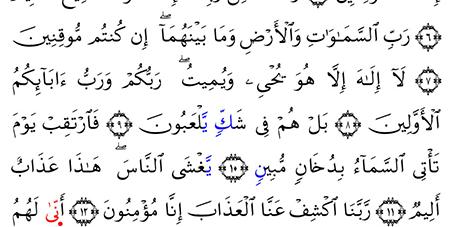 ﴿٦﴾ رَبِّ ٱلسَّمَٰوَٰتِ وَٱلْأَرْضِ وَمَا بَيْنَهُمَآ ۖ إِن كُنتُم مُّوقِنِينَ
﴿٧﴾ لَآ إِلَٰهَ إِلَّا هُوَ يُحْىِۦ وَيُمِيتُ ۖ رَبُّكُمْ وَرَبُّ ءَابَآئِكُمُ
ٱلْأَوَّلِينَ ﴿٨﴾ بَلْ هُمْ فِى شَكٍّ يَّلْعَبُونَ ﴿٩﴾ فَٱرْتَقِبْ يَوْمَ
تَأْتِى ٱلسَّمَآءُ بِدُخَانٍ مُّبِينٍ ﴿١٠﴾ يَّغْشَى ٱلنَّاسَ ۖ هَٰذَا عَذَابٌ
أَلِيمٌ ﴿١١﴾ رَّبَّنَا ٱكْشِفْ عَنَّا ٱلْعَذَابَ إِنَّا مُؤْمِنُونَ ﴿١٢﴾ أَنَّىٰ لَهُمُ